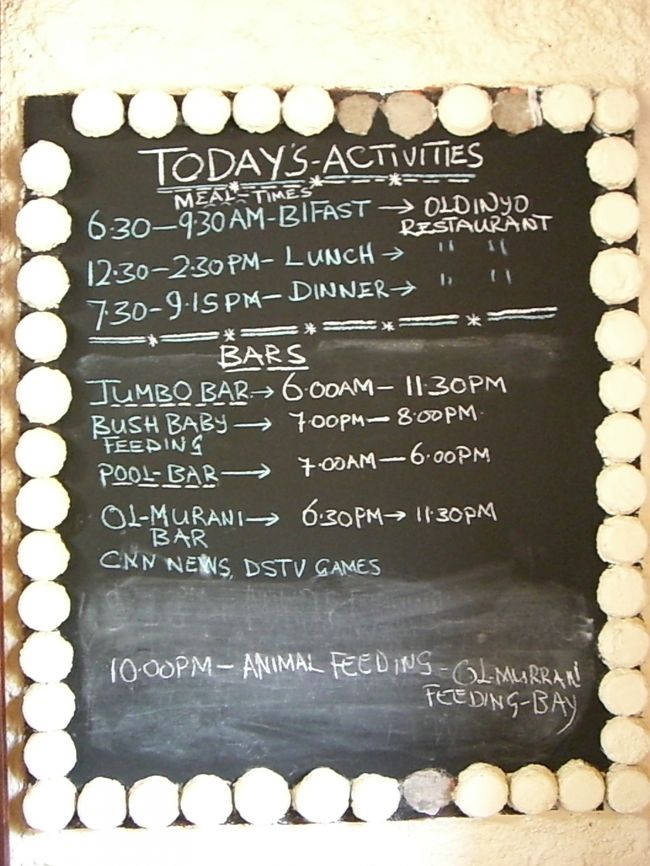 TODAY'S-ACTIVITIES
MEAL-TIMES
6.30-9.30AM-B/FAST → OLDINYO
RESTAURANT
12.30-2.30PM- LUNCH → " "
7.30-9.15PM- DINNER → " "
BARS
JUMBO BAR → 6.00AM- 11.30PM
BUSH BABY → 7.00PM- 8.00PM.
FEEDING
POOL-BAR → 7.00AM-6.00PM
OL-MURANI → 6.30PM → 11.30PM
BAR
CNN NEWS, DSTV GAMES
10.00PM- ANIMAL FEEDING - OL-MURRANI
FEEDING-BAY